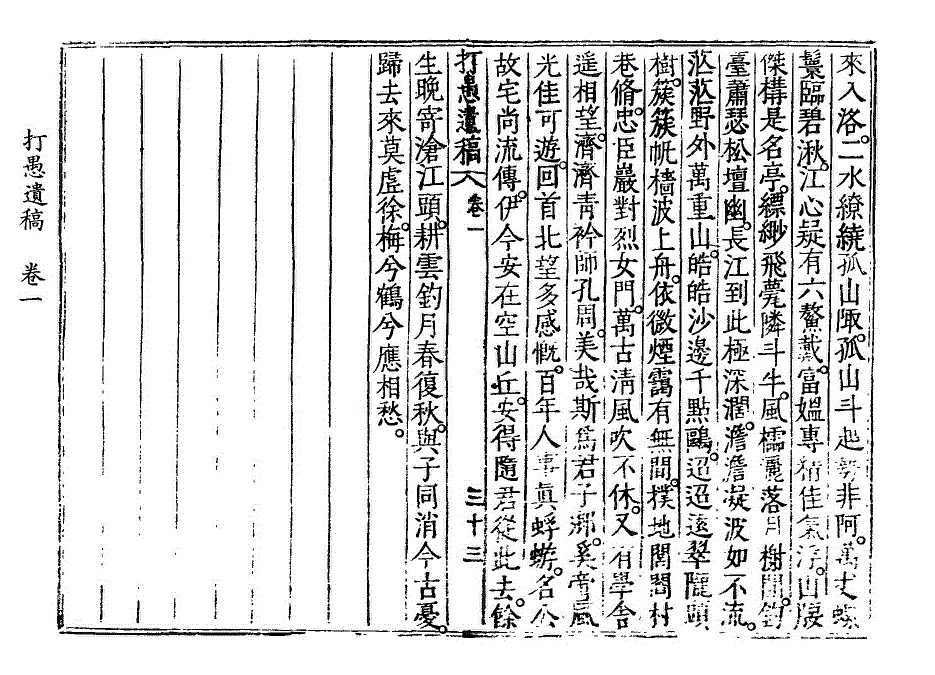 來入洛。二水繚繞孤山陬。孤山斗起勢非阿。萬丈蟠
鬟臨碧湫。江心疑有六鰲戴。富媼專精佳氣浮。山腰
傑構是名亭。縹緲飛甍隣斗牛。風欞麗落月榭開。釣
臺蕭瑟松壇幽。長江到此極深濶。澹澹凝波如不流。
茫茫野外萬重山。皓皓沙邊千點鷗。迢迢遠翠隴頭
樹。簇簇帆檣波上舟。依微煙靄有無間。撲地閭閻村
巷脩。忠臣巖對烈女門。萬古淸風吹不休。又有學舍
遥相望。濟濟靑衿師孔周。美哉斯爲君子鄕。奚啻風
光佳可遊。回首北望多感慨。百年人事眞蜉蝣。名公
故宅尚流傳。伊今安在空山丘。安得隨君從此去。餘
打愚遺稿 卷一 三十三
生晚寄滄江頭。耕雲釣月春復秋。與子同消今古憂。
歸去來莫虛徐。梅兮鶴兮應相愁。
打愚遺稿 卷一